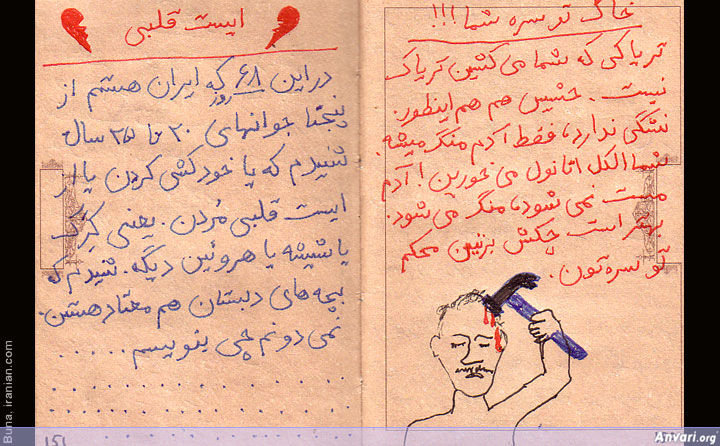 خاک تو سره شما!!!
تریاکی که شما می کشین تریاک
نیست. حشیش هم هم اینطور.
نشگی ندارد، فقط آدم منگ میشه.
شما الکل اتانول می خورین! آدم
مست نمی شود، منگ می شود.
بهتر است چکش بزنین محکم
تو سره تون.
ایست قلبی
در این ۶۸ روز که ایران هستم از
پنجتا جوانهای ۲۰ تا ۲۵ سال
شنیدم که یا خودکشی کردن یا از
ایست قلبی مُردن. یعنی کِرَک
یا شیشه یا هروئین دیگه. شنیدم که
بچه های دبستان هم معتاد هستن.
نمی دونم چی بنویسم......
Buna, iranian.com
Anvari.org